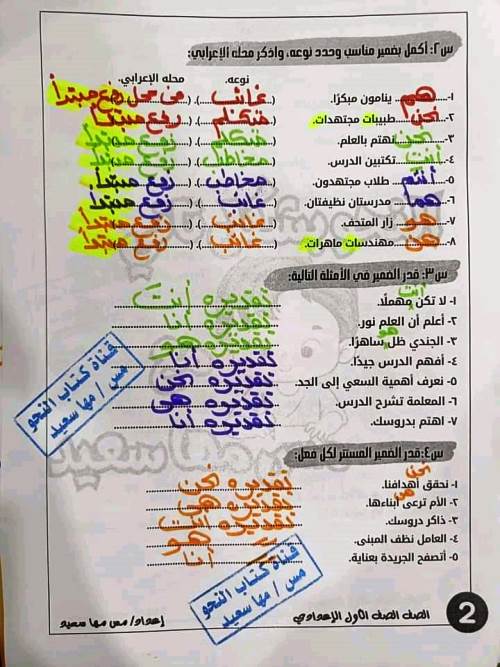 س٢: أكمل بضمير مناسب وحدد نوعه، واذكر محله الإعرابي:
نوعه. محله الإعرابي.
١- هم ينامون مبكرًا. (غائب) (فى محل رفع مبتدأ)
٢- نحن طبيبات مجتهدات. (متكلم) (رفع مبتدأ)
٣- نحن نهتم بالعلم. (متكلم) (رفع مبتدأ)
٤- أنتِ تكتبين الدرس. (مخاطب) (رفع مبتدأ)
٥- أنتم طلاب مجتهدون. (مخاطب) (رفع مبتدأ)
٦- هما مدرستان نظيفتان. (غائب) (رفع مبتدأ)
٧- هو زار المتحف. (غائب) (رفع مبتدأ)
٨- هن مهندسات ماهرات. (غائب) (رفع مبتدأ)
س٣: قدر الضمير في الأمثلة التالية:
١- لا تكن مهملًا. أنت تقديره أنت
٢- أعلم أن العلم نور. تقديره أنا
٣- الجندي ظل ساهرًا. هو تقديره هو
٤- أفهم الدرس جيدًا. تقديره أنا
٥- نعرف أهمية السعي إلى الجد. تقديره نحن
٦- المعلمة تشرح الدرس. تقديره هى
٧- اهتم بدروسك. تقديره أنا
قناة كتاب النحو
مس / مها سعيد
س٤: قدر الضمير المستتر لكل فعل:
١- نحقق أهدافنا. نحن تقديره نحن
٢- الأم ترعى أبناءها. هى تقديره هى
٣- ذاكر دروسك. تقديره أنت
٤- العامل نظف المبنى. هو
٥- أتصفح الجريدة بعناية. أنا
قناة كتاب النحو
مس / مها سعيد
2 الصف الأول الإعدادي إعداد/ مس مها سعيد